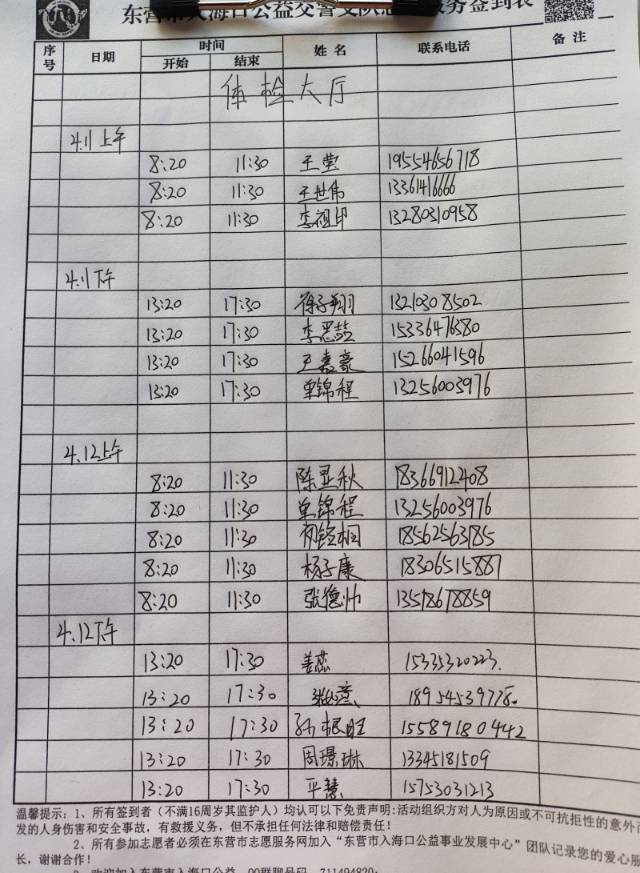 东营市入海口公益交警支队志愿服务签到表
序号 日期 时间 开始 结束 姓名 联系电话 备注
体检大厅
4.11上午
8:20 11:30 王莹 19554656718
8:20 11:30 王世伟 13361416666
8:20 11:30 李祖印 13280310958
4.11下午
13:20 17:30 徐子翔 13210308502
13:20 17:30 李思喆 15336476380
13:20 17:30 王嘉豪 15266041596
13:20 17:30 单锦程 13256003976
4.12上午
8:20 11:30 陈亚秋 18366912408
8:20 11:30 单锦程 13256003976
8:20 11:30 初铭桐 18562563185
8:20 11:30 杨子康 18306515887
8:20 11:30 张德帅 13518678859
4.12下午
13:20 17:30 姜蕊 15335320223.
13:20 17:30 18954539778.
13:20 17:30 孙根旺 15589180442
13:20 17:30 周璟琳 13345181509
13:20 17:30 平慧 15753031213
温馨提示:1、所有签到者(不满16周岁其监护人)均认可以下免责声明:活动组织方对人为原因或不可抗拒性的意外
发的人身伤害和安全事故,有救援义务,但不承担任何法律和赔偿责任!
2、所有参加志愿者必须在东营市志愿服务网加入“东营市入海口公益事业发展中心”团队记录您的爱心服
长,谢谢合作!
3、欢迎加入东营市入海口公益,QQ群聊号码:711494820;